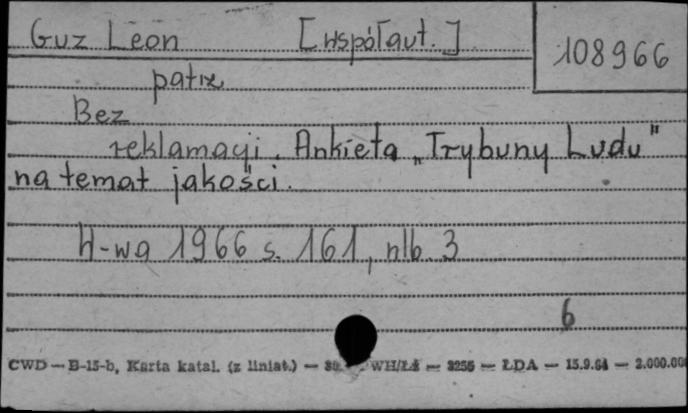 Guz Leon [współaut.]
108966
patrz
Bez
reklamacji. Ankieta „Trybuny Ludu"
na temat jakości.
W-wa 1966 s. 161, nlb. 3
6
CWD — B-15-b, Karta katal. (z liniat.) — WH/Łź — 3255 — ŁDA — 15.9.64 — 2.000.000